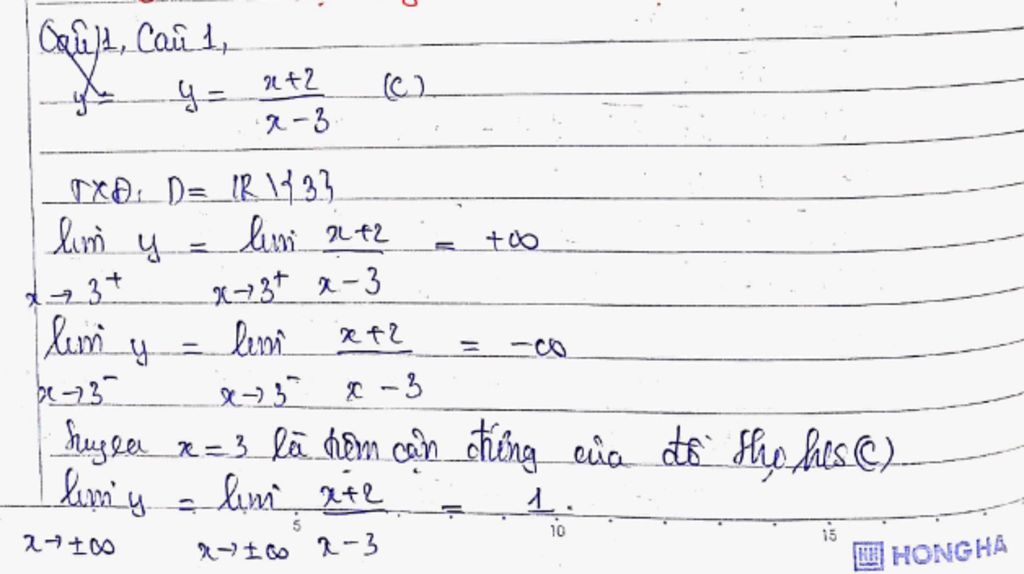 Câu 1, Câu 1,
y = y = x+2 / x-3 (C)
TXĐ: D = ℝ \ {3}
lim x→3⁺ y = lim x→3⁺ x+2 / x-3 = +∞
lim x→3⁻ y = lim x→3⁻ x+2 / x-3 = -∞
Suy ra x = 3 là tiệm cận đứng của đồ thị hs (C)
lim x→±∞ y = lim x→±∞ x+2 / x-3 = 1.
5 10 15
HH HONG HA